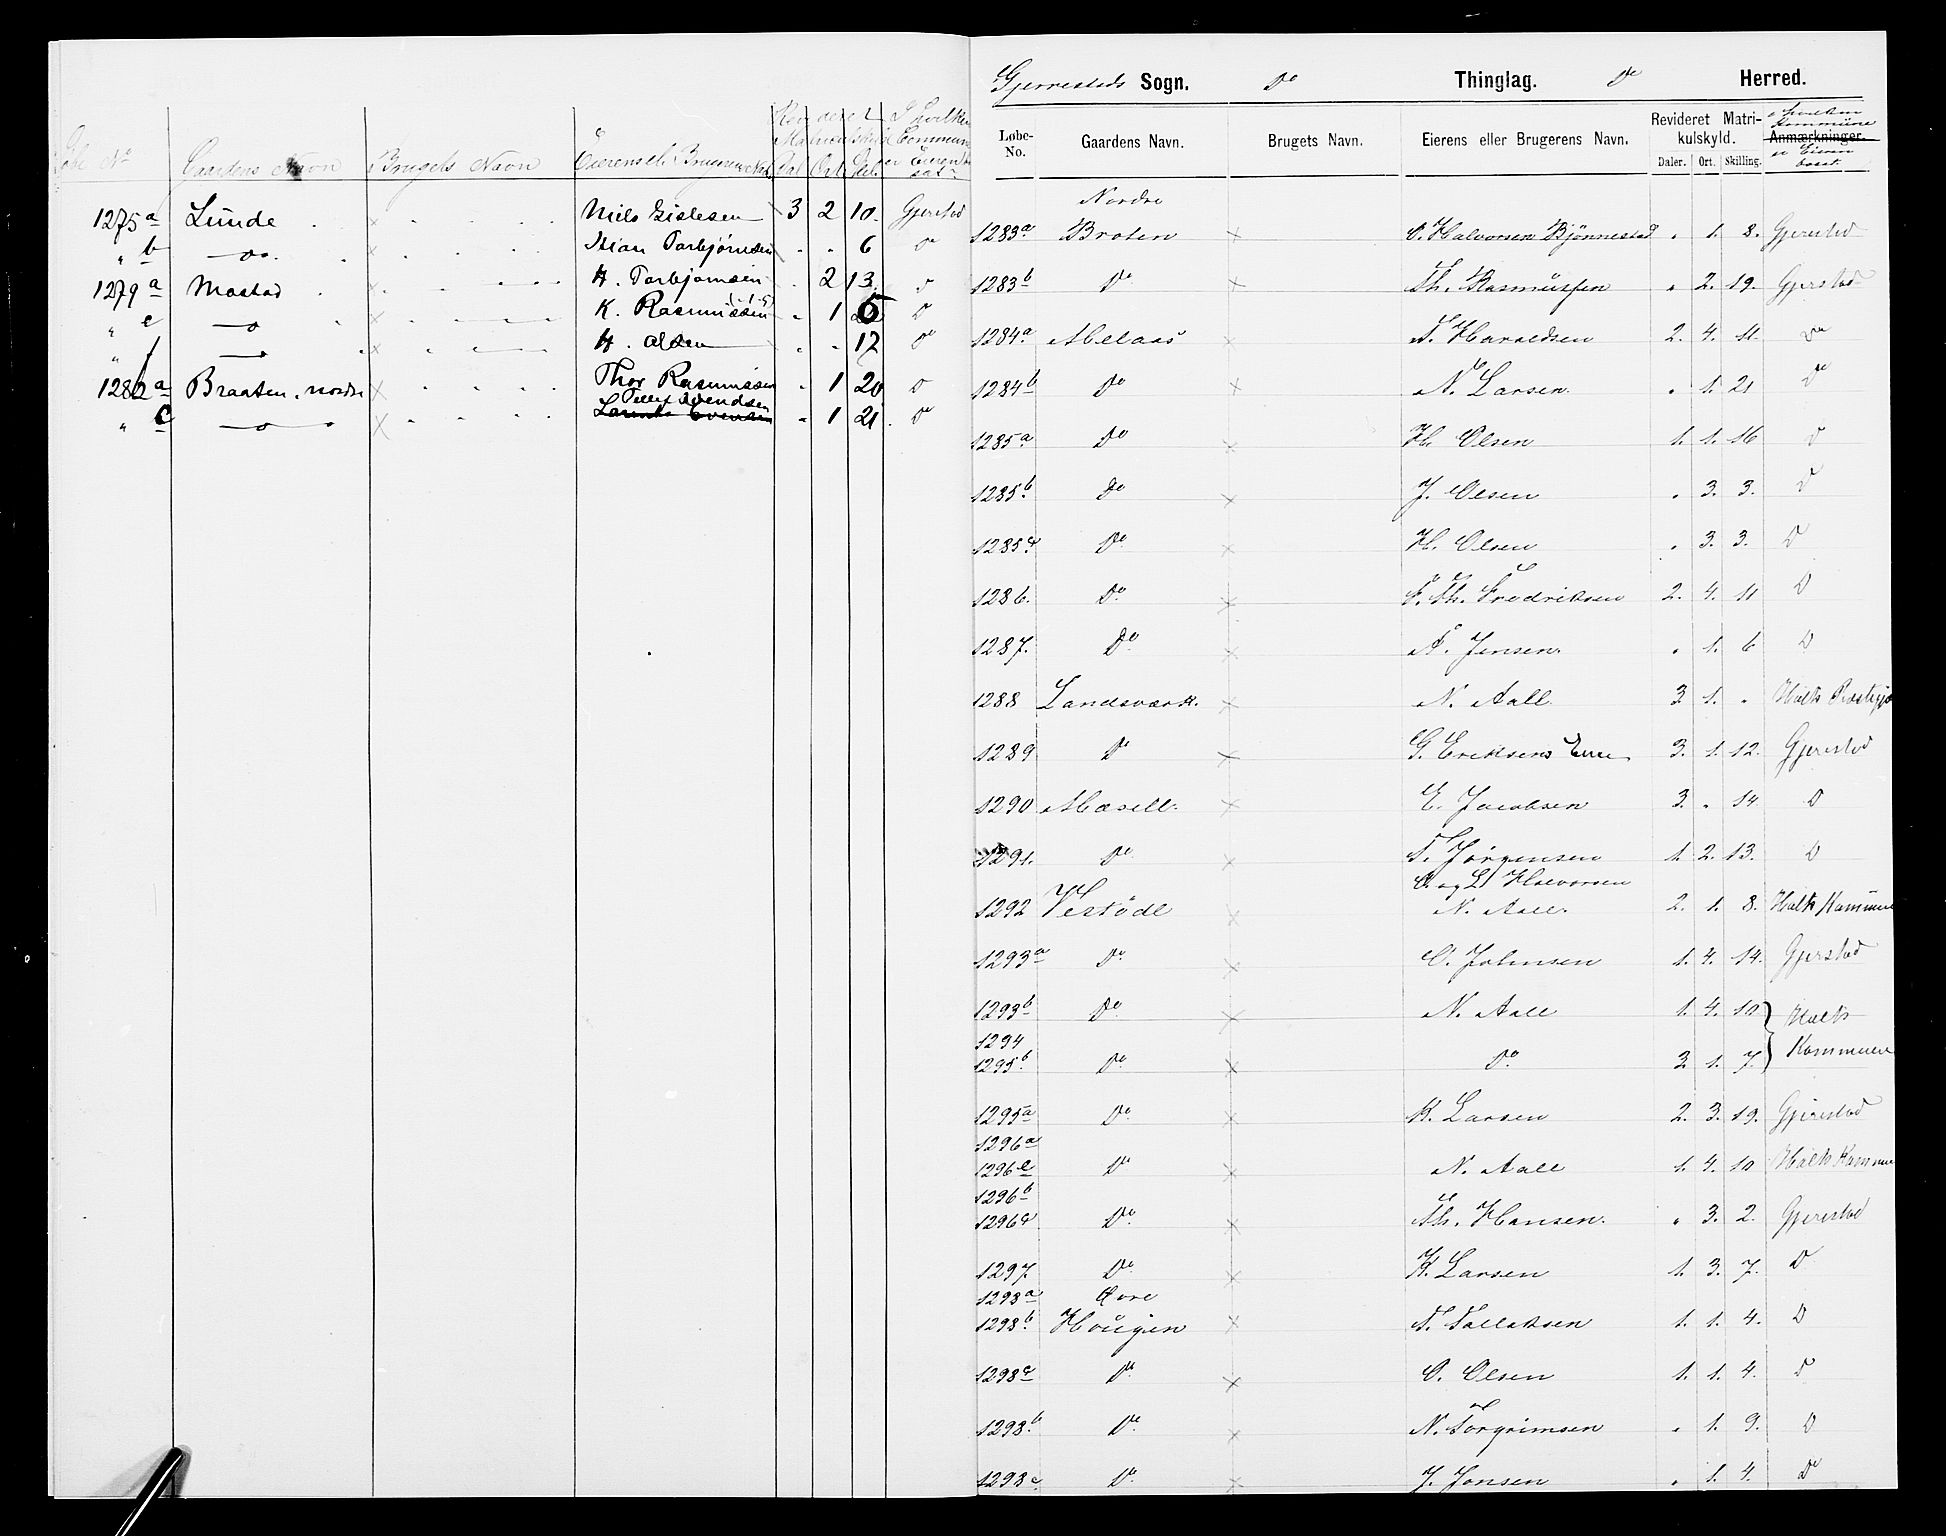 Løbe No Gaardens Navn Brugets Navn Eierens el. Brugerens Navn Dal Ort
1275a Lunde Niels Gislesen 3 2 10 Gjerestad
" b —do. Torbjørnsen " " 6 Do
1279a Mostad H. Torbjørnsen " 2 13 D
" c —o K. Rasmussen (-1-5) " 1 6 D
" f —o H. Olsen " " 17 Do
1282a Braaten, nordre Thor Rasmussen " 1 20 D
Tellef Svendsen
" c —o Evensen " 1 21 Do
Gjerrestads Sogn. Do Thinglag. Do Herred.
Løbe-No. Gaardens Navn. Brugets Navn. Eierens eller Brugerens Navn. Revideret Matrikulskyld. Daler. Ort. Skilling. Anmærkninger. i hvilken Kommune er Eieren bosat.
Nordre
1283a Broten O. Halvorsen Bjönnestad " 1. 8. Gjerestad
1283b Do Th. Rasmussen " 2. 19. Gjerstad
1284a Melaas T. Haraldsen 2. 4. 11. Do
1284b Do N. Larsen " 1. 21 Do
1285a Do H. Olsen 1. 1. 16 D
1285b Do J. Olsen " 3. 3. D
1285c Do H. Olsen " 3. 3. D
1286. Do T. Th. Fredriksen 2. 4. 11 D
1287. Do T. Jensen. " 1. 6 D
1288 Landsværk. N. Aall. 3 1. " Holts Præstegj
1289 Do G. Eriksens Enke 3. 1. 12. Gjerestad
1290 Mæsell. E. Jacobsen 3. " 14 D
1291. Do T. Jørgensen 1. 2. 13. D
O. og L. Halvorsen
1292 Vestödl N. Aall. 2. 1. 8. Holts Kommune
1293a Do O. Johnsen 1. 4. 14. Gjerstad
1293b Do N. Aall 1. 4. 10 } Holts
1294
1295b Do Do 3 1. 7. } Kommune
1295a Do K. Larsen 2. 3. 19. Gjerestad
1296a
1296e Do N. Aall 1. 4. 10 Holts Kommune
1296b
1296c Do Th. Hansen. " 3. 2. Gjerestad
1297 Do K. Larsen 1. 3. 7. D
1298a Övre
1298b Hougen T. Tallaksen 1. 1. 4. D
1298c Do O. Olsen 1. 1. 4. D
1298b Do N. Torgrimsen " 1. 9. D
1298c Do J. Jonsen " 1. 4. Do